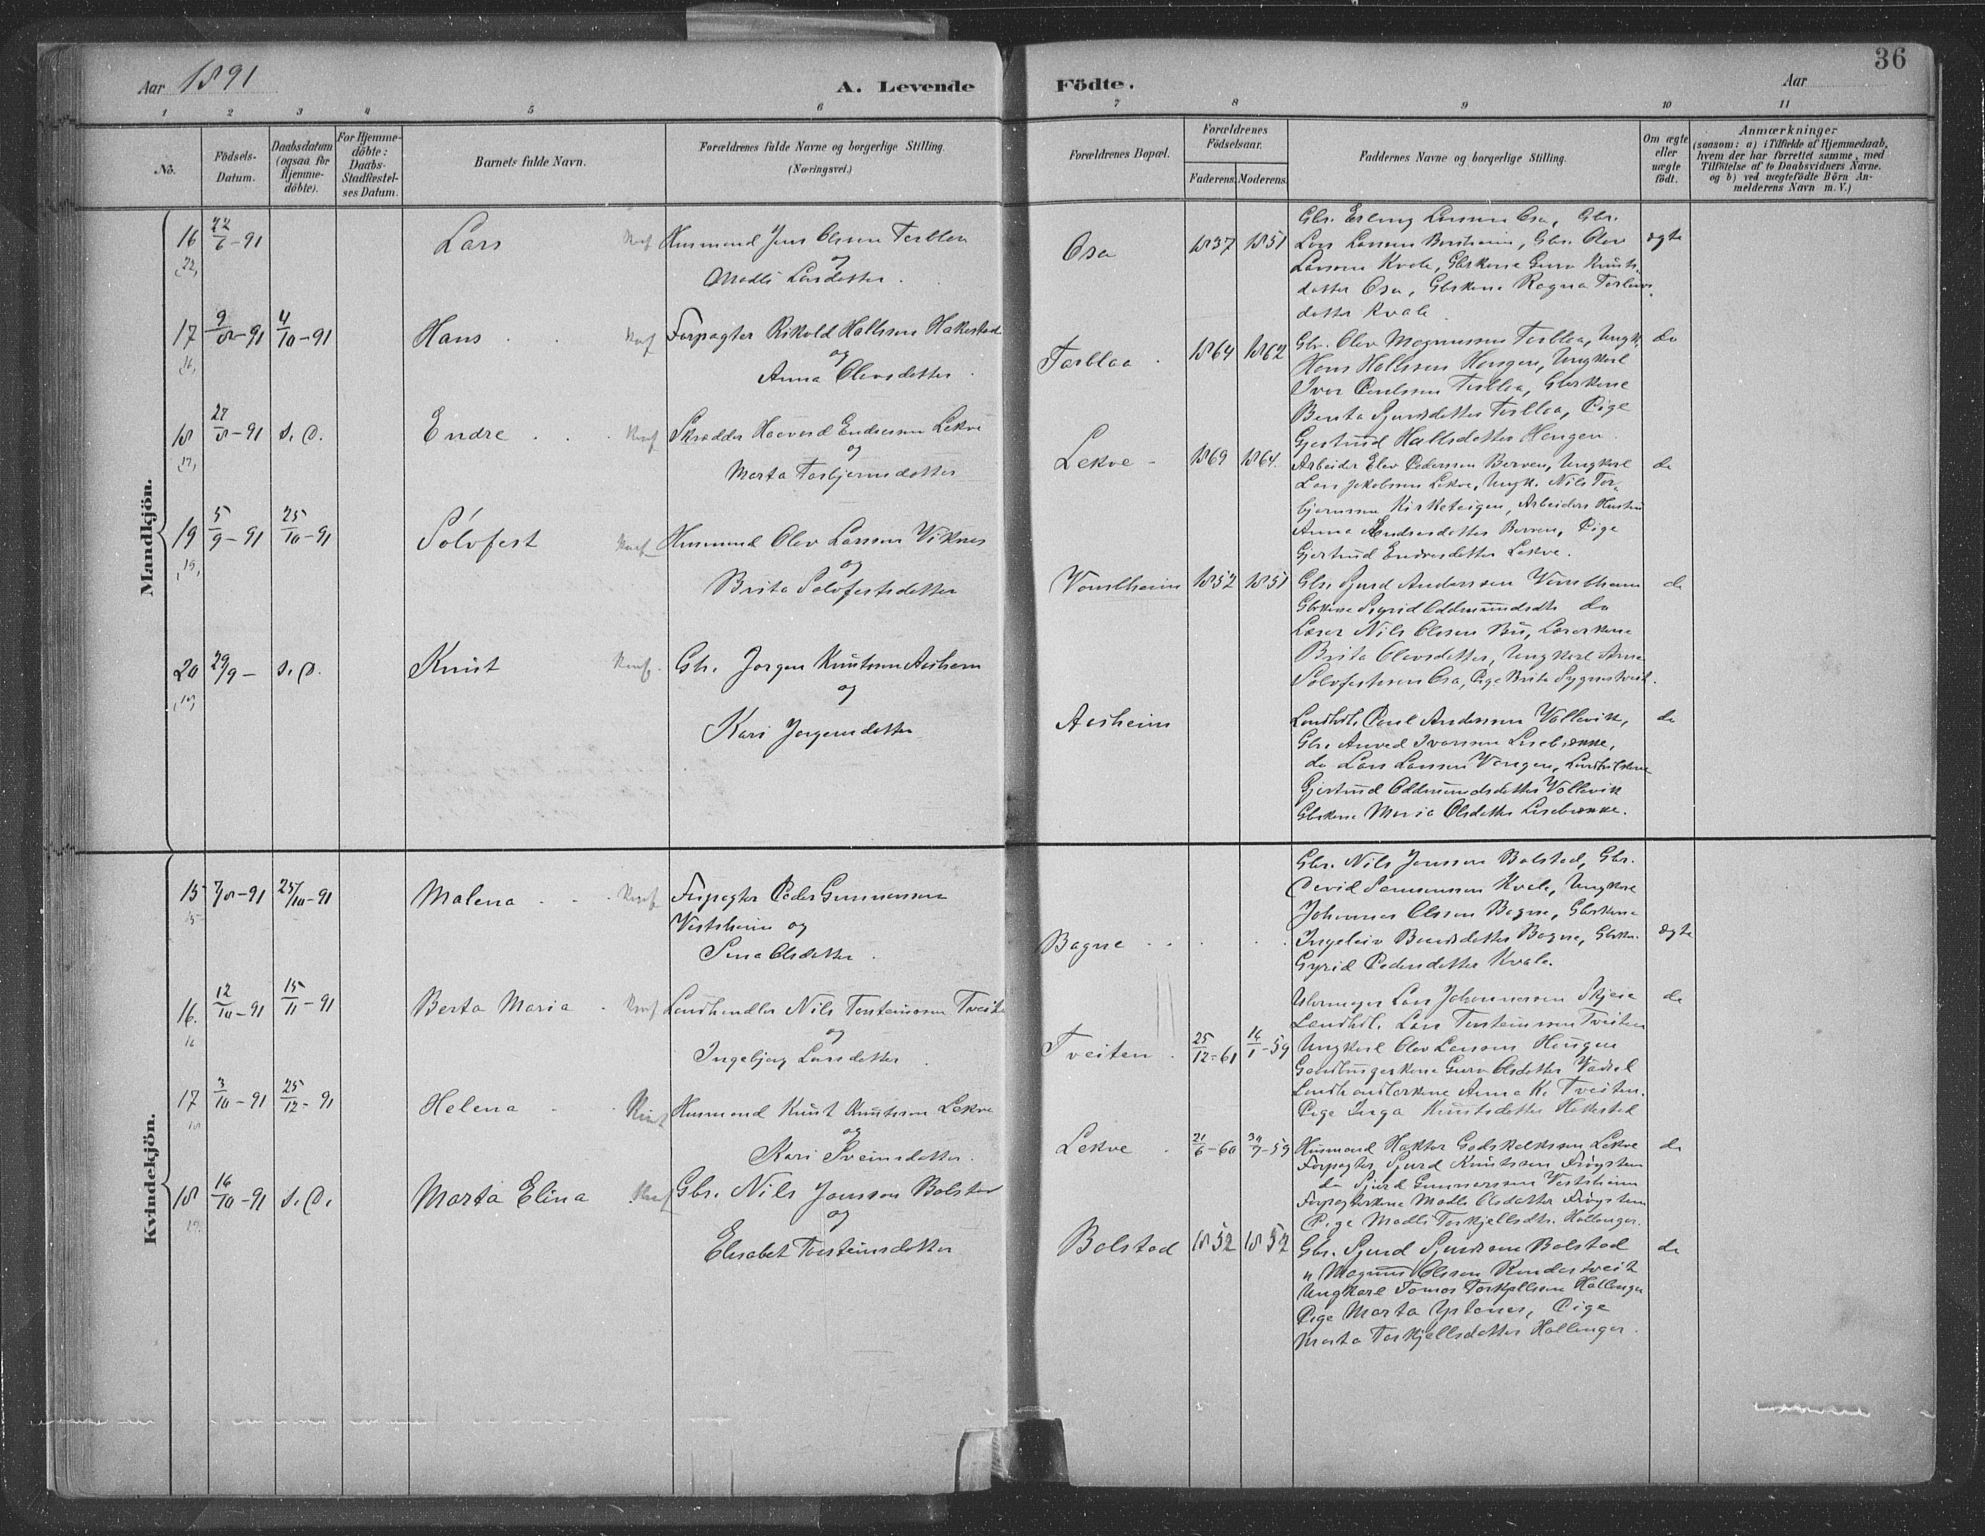 36
Aar 1891
A. Levende
Födte.
Aar
1 2 3 4 5 6 7 8 9 10 11
No.
Födsels-Datum.
Daabsdatum (ogsaa for Hjemme-döbte).
For Hjemme-döbte: Daabs-Stadfæstel-ses Datum.
Barnets fulde Navn.
Forældrenes fulde Navne og borgerlige Stilling.
(Næringsvei.)
Forældrenes Bopæl.
Forældrenes Födselsaar.
Faderens. Moderens.
Faddernes Navne og borgerlige Stilling.
Om ægte eller uægte födt.
Anmærkninger
(saasom: a) i Tilfælde af Hjemmedaab,
hvem der har forrettet samme, med
Tilföielse af to Daabsvidners Navne.
og b) ved uægtefödte Börn An-
melderens Navn m. V.)
Mandkjön.
16 22/6-91 Lars Husmand Jens Olsen Torblaa
og
Madli Larsdatter
Osa 1837 1851 ægte
Gbr. Erling Larsen Osa, Gbr.
Lars Larsen Borsheim, Gbr. Olav
Larsen Kvale, Gbrkone Guro Knuts-
datter Osa, Gbrkone Ragna Torleivs-
datter Kvale
17 9/8-91 4/10-91 Hans Forpagter Rikold Hallsson Hakestad
og
Anna Olavsdatter
Torblaa 1864 1862 do
Gbr. Olav Magnussen Torblaa, Ungk.
Hans Hallssen Haugen, Ungkarl
Ivar Paulssen Torblaa, Gbrkone
Berita Sjursdatter Torblaa, Pige
Gjertrud Hallsdatter Haugen
18 27/8-91 s. D. Endre Skrædder Haavard Endresen Lekve
og
Marta Torbjørnsdatter
Lekve 1869 1864 do
Arbeider Elev Pedersen Berven, Ungkarl
Lars Jakobsen Lekve, Ungk. Nils Tor-
bjørnssen Kirketeigen, Arbeiders Hustru
Anna Endresdatter Berven, Pige
Gjertrud Endresdatter Lekve.
19 5/9-91 25/10-91 Solvfest Husmand Olav Larssen Viknes
og
Brita Solvfestsdatter
Vambheim 1852 1851 do
Gbr. Sjurd Anderssen Vambheim
Gbrkone Sigrid Oddmundsdt. do
Lærer Nils Olssen Bu, Lærerkone
Brita Olavsdatter, Ungkarl Arne
Solvfestssen Osa, Pige Brita Sygnestveit.
20 29/9- s. D. Knut Gbr. Jørgen Knutssen Aasheim
og
Kari Jørgensdatter
Aasheim do
Landhdl. Paul Anderssen Vallavik,
Gbr. Amund Ivarssen Lisebrække,
do Lars Larssen Vangen, Landhdlkone
Gjertrud Oddmundsdatter Vallavik
Gbrkone Maria Olsdatter Lisebrække.
Kvindekjön.
15 7/8-91 25/10-91 Malena Forpagter Peder Gunnarssen
Vestrheim og
Sina Olsdatter
Bagne ægte
Gbr. Nils Jonssen Bolstad, Gbr.
David Samsonssen Kvale, Ungkarl
Johannes Olssen Bagne, Gbrkone
Ingeleiv Bendsdatter Bagne, Gbrkn.
Gyrid Pedersdatter Kvale.
16. 12/10-91 15/11-91 Berta Maria Landhandler Nils Torsteinssen Tveiten
og
Ingebjørg Larsdatter
Tveiten 25/12-61 16/1-59 do
Uhrmager Lars Johannessen Skjesa
Landhdl. Lars Torsteinssen Tveiten
Ungkarl Olav Larssen Haugen
Landhandlerkone Anna K. Tveiten.
Pige Inga Knutsdatter Hakestad
17 3/10-91 25/12-91 Helena Husmand Knut Knutssen Lekve
og
Kari Sveinsdatter
Lekve 21/6-60 do
Husmand Haktor Godskalkssen Lekve
Forpagter Sjurd Knutssen Frøystein
do Sjurd Gunnarssen Vestrheim
Forpagterkone Madli Olsdatter Frøystein
Pige Madli Torkjellsdtr. Hallanger.
18 16/10-91 s. D. Marta Elina Gbr. Nils Jonssen Bolstad
og
Elisabet Torsteinsdatter
Bolstad 1852 1852 do
Gbr. Sjurd Sjurdssen Bolstad
" Magnus Olssen Røndestveit
Ungkarl Tomas Torkjellssen Hallanger
Pige Marta Ystanes, Pige
Marta Torkjellsdatter Hallanger.